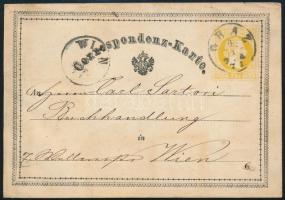 WIEN
GRAZ
Correspondenz-Karte.
Carl Sartori
Buchhandlung
in
Wien
6